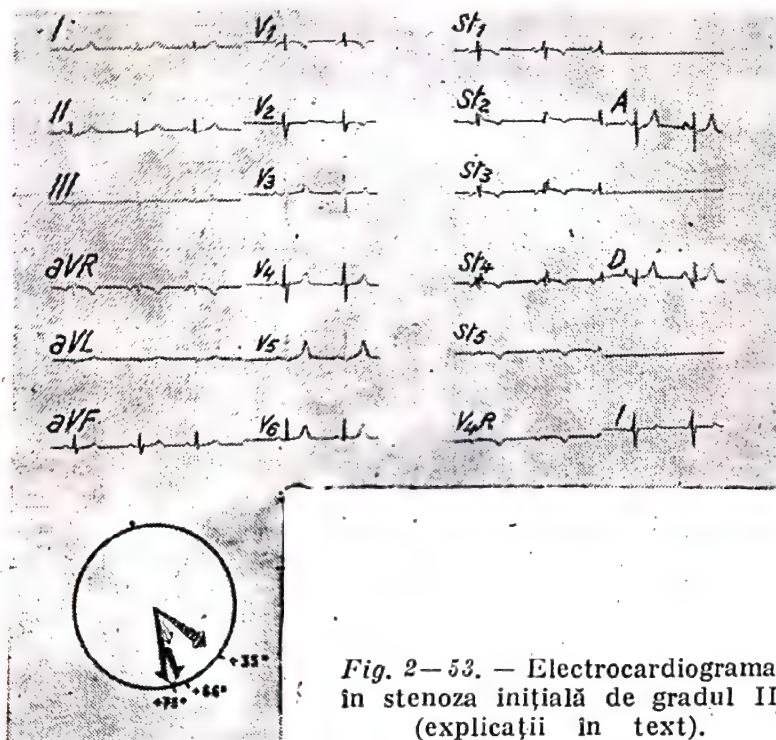 I V1 St1
II V2 St2 A
III V3 St3
aVR V4 St4 D
aVL V5 St5
aVF V6 V4R I
+35°
+66°
+75°
Fig. 2—53. — Electrocardiograma
în stenoza inițială de gradul II
(explicații în text).